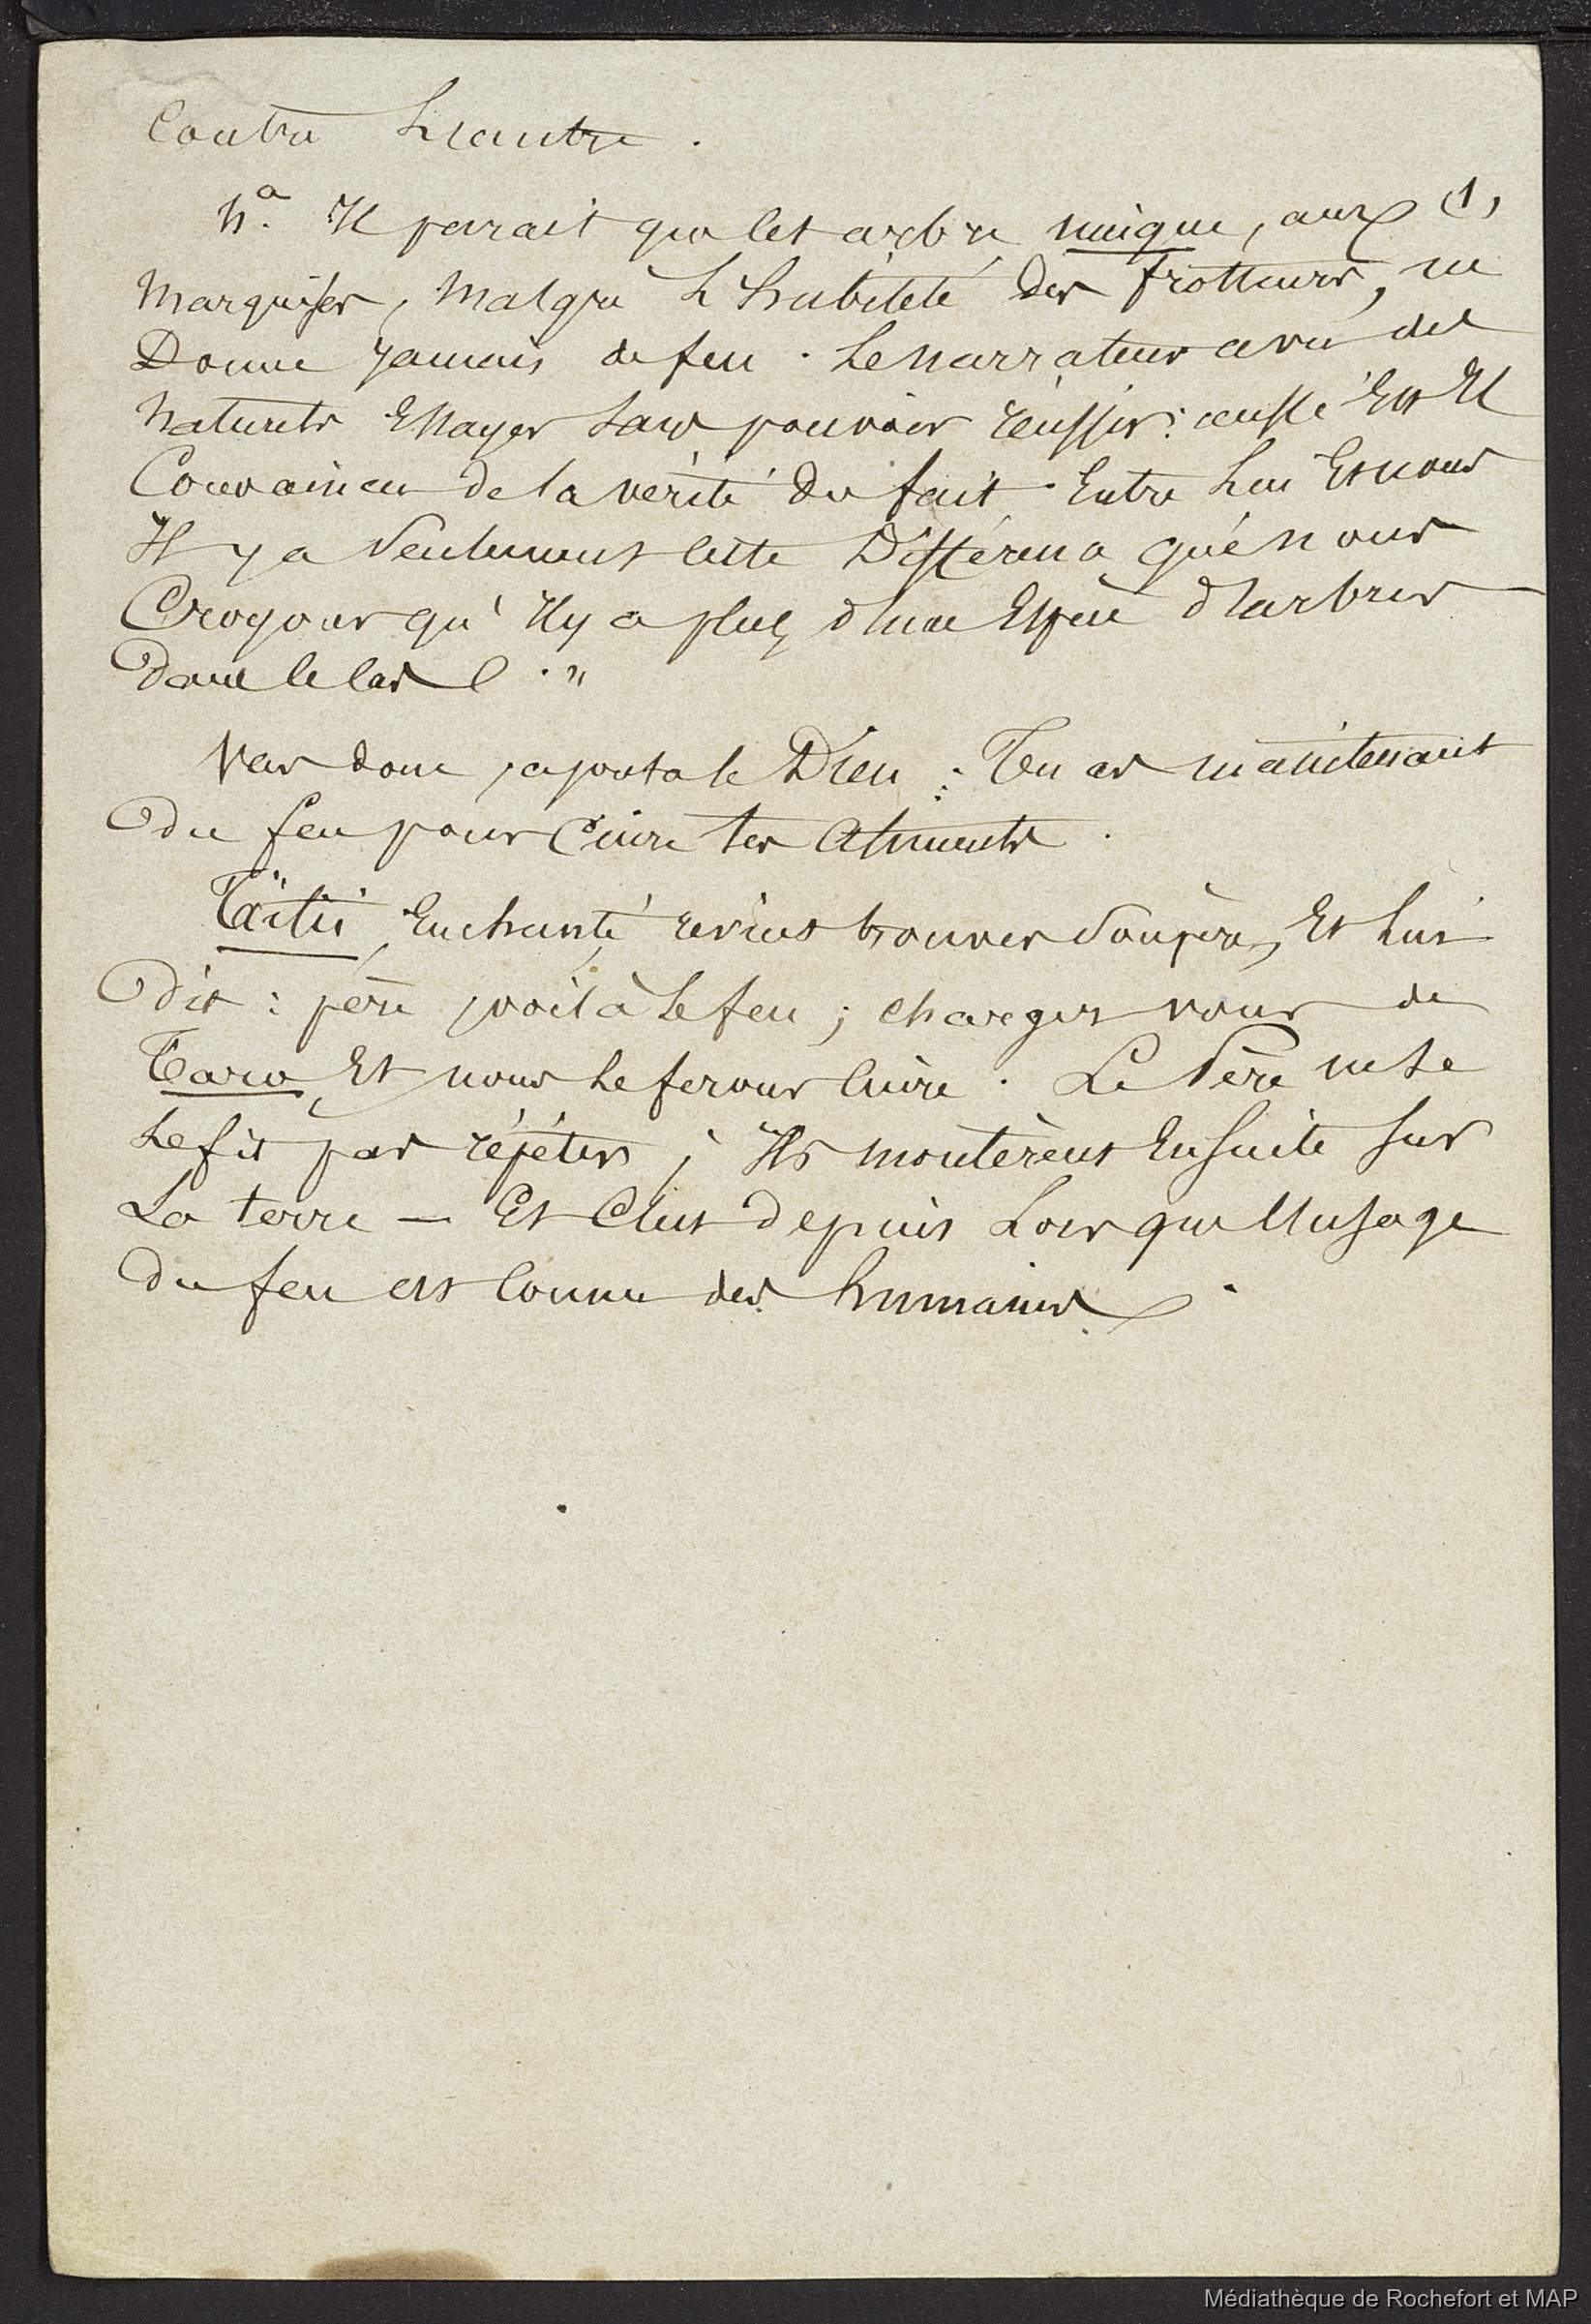 contre l'autre.
Na. Il parait que cet arbre unique, aux (1)
Marquises, malgré l'habileté des frotteurs, ne
Donne jamais de feu. Le narrateur a vu des
naturels Essayer sans pouvoir réussir : aussi Est Il
Convaincu de la vérité du fait. Entre lui Et nous
Il y a seulement cette Différence que nous
Croyons qu'Il y a plus d'une Espèce d'arbres
Dans le cas."
Vas donc, ajouta le Dieu : Tu as maintenant
Du feu pour Cuire tes aliments.
Enchanté, revient trouver son père, Et lui
Dit : père, voilà le feu ; chargez vous de
Taro, Et nous le ferons Cuire. Le Père ne se
le fit pas répéter ; Ils montèrent Ensuite sur
La terre — Et C'est depuis Lors que l'usage
Du feu est Connu des humains.
Médiathèque de Rochefort et MAP